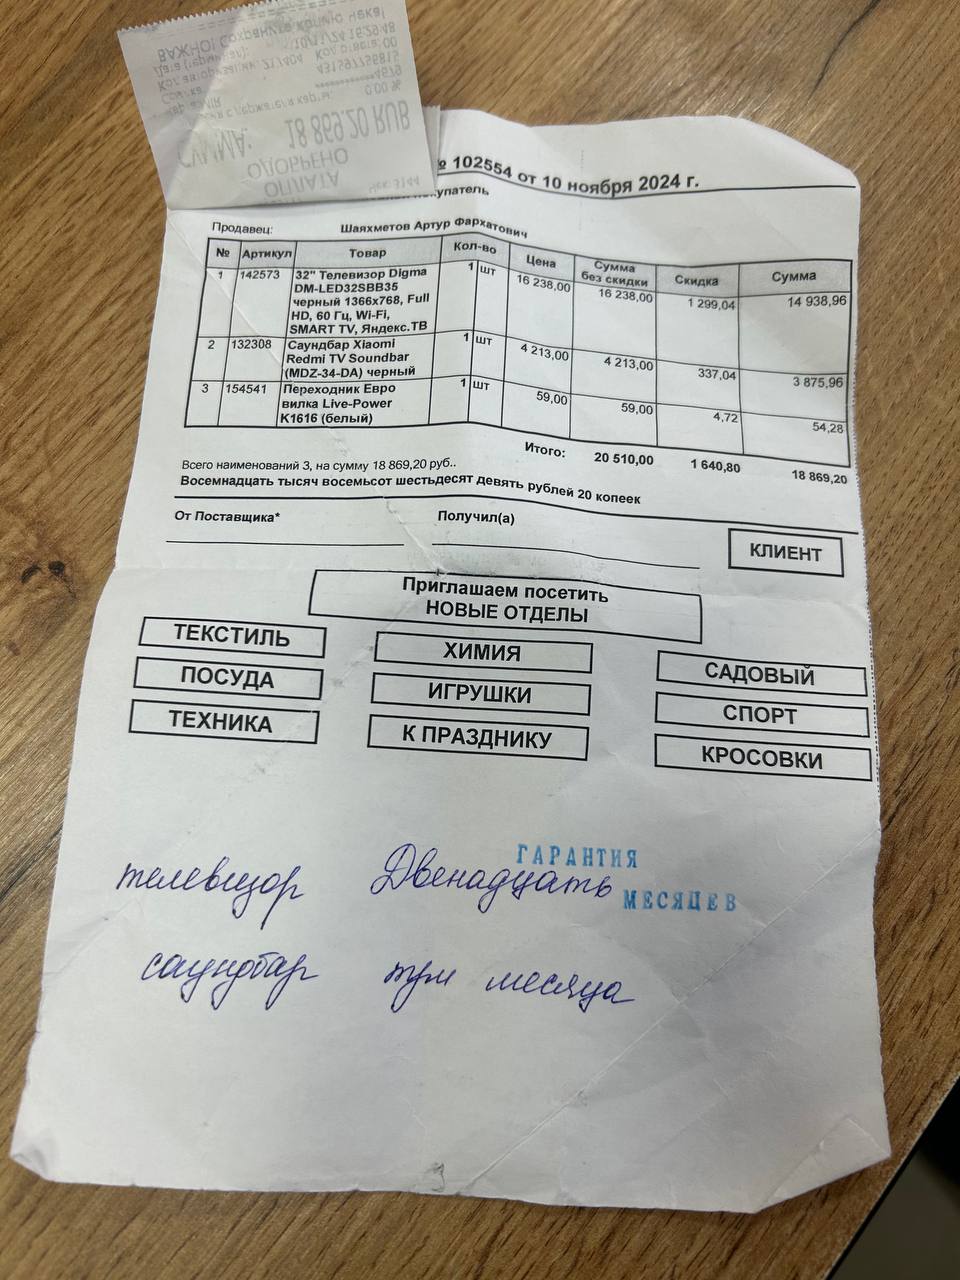 ВАЖНО! Сохраните копию чека!
Дата (терминал): 10/11/24 16:29:48
Код авторизации: 217404 Код ответа: 00
Ссылка 431597756815
************4679
с держателя карты: 0.00 %
СУММА: 18 869.20 RUB
ОДОБРЕНО
ОПЛАТА
Чек 3144
№ 102554 от 10 ноября 2024 г.
покупатель
Продавец: Шаяхметов Артур Фархатович
№ Артикул Товар Кол-во Цена Сумма без скидки Скидка Сумма
1 142573 32" Телевизор Digma 1 шт 16 238,00 16 238,00 1 299,04 14 938,96
DM-LED32SBB35
черный 1366x768, Full
HD, 60 Гц, Wi-Fi,
SMART TV, Яндекс.ТВ
2 132308 Саундбар Xiaomi 1 шт 4 213,00 4 213,00 337,04 3 875,96
Redmi TV Soundbar
(MDZ-34-DA) черный
3 154541 Переходник Евро 1 шт 59,00 59,00 4,72 54,28
вилка Live-Power
K1616 (белый)
Итого: 20 510,00 1 640,80 18 869,20
Всего наименований 3, на сумму 18 869,20 руб..
Восемнадцать тысяч восемьсот шестьдесят девять рублей 20 копеек
От Поставщика* Получил(а)
КЛИЕНТ
Приглашаем посетить
НОВЫЕ ОТДЕЛЫ
ТЕКСТИЛЬ ХИМИЯ САДОВЫЙ
ПОСУДА ИГРУШКИ СПОРТ
ТЕХНИКА К ПРАЗДНИКУ КРОСОВКИ
ГАРАНТИЯ
телевизор Двенадцать МЕСЯЦЕВ
саундбар три месяца